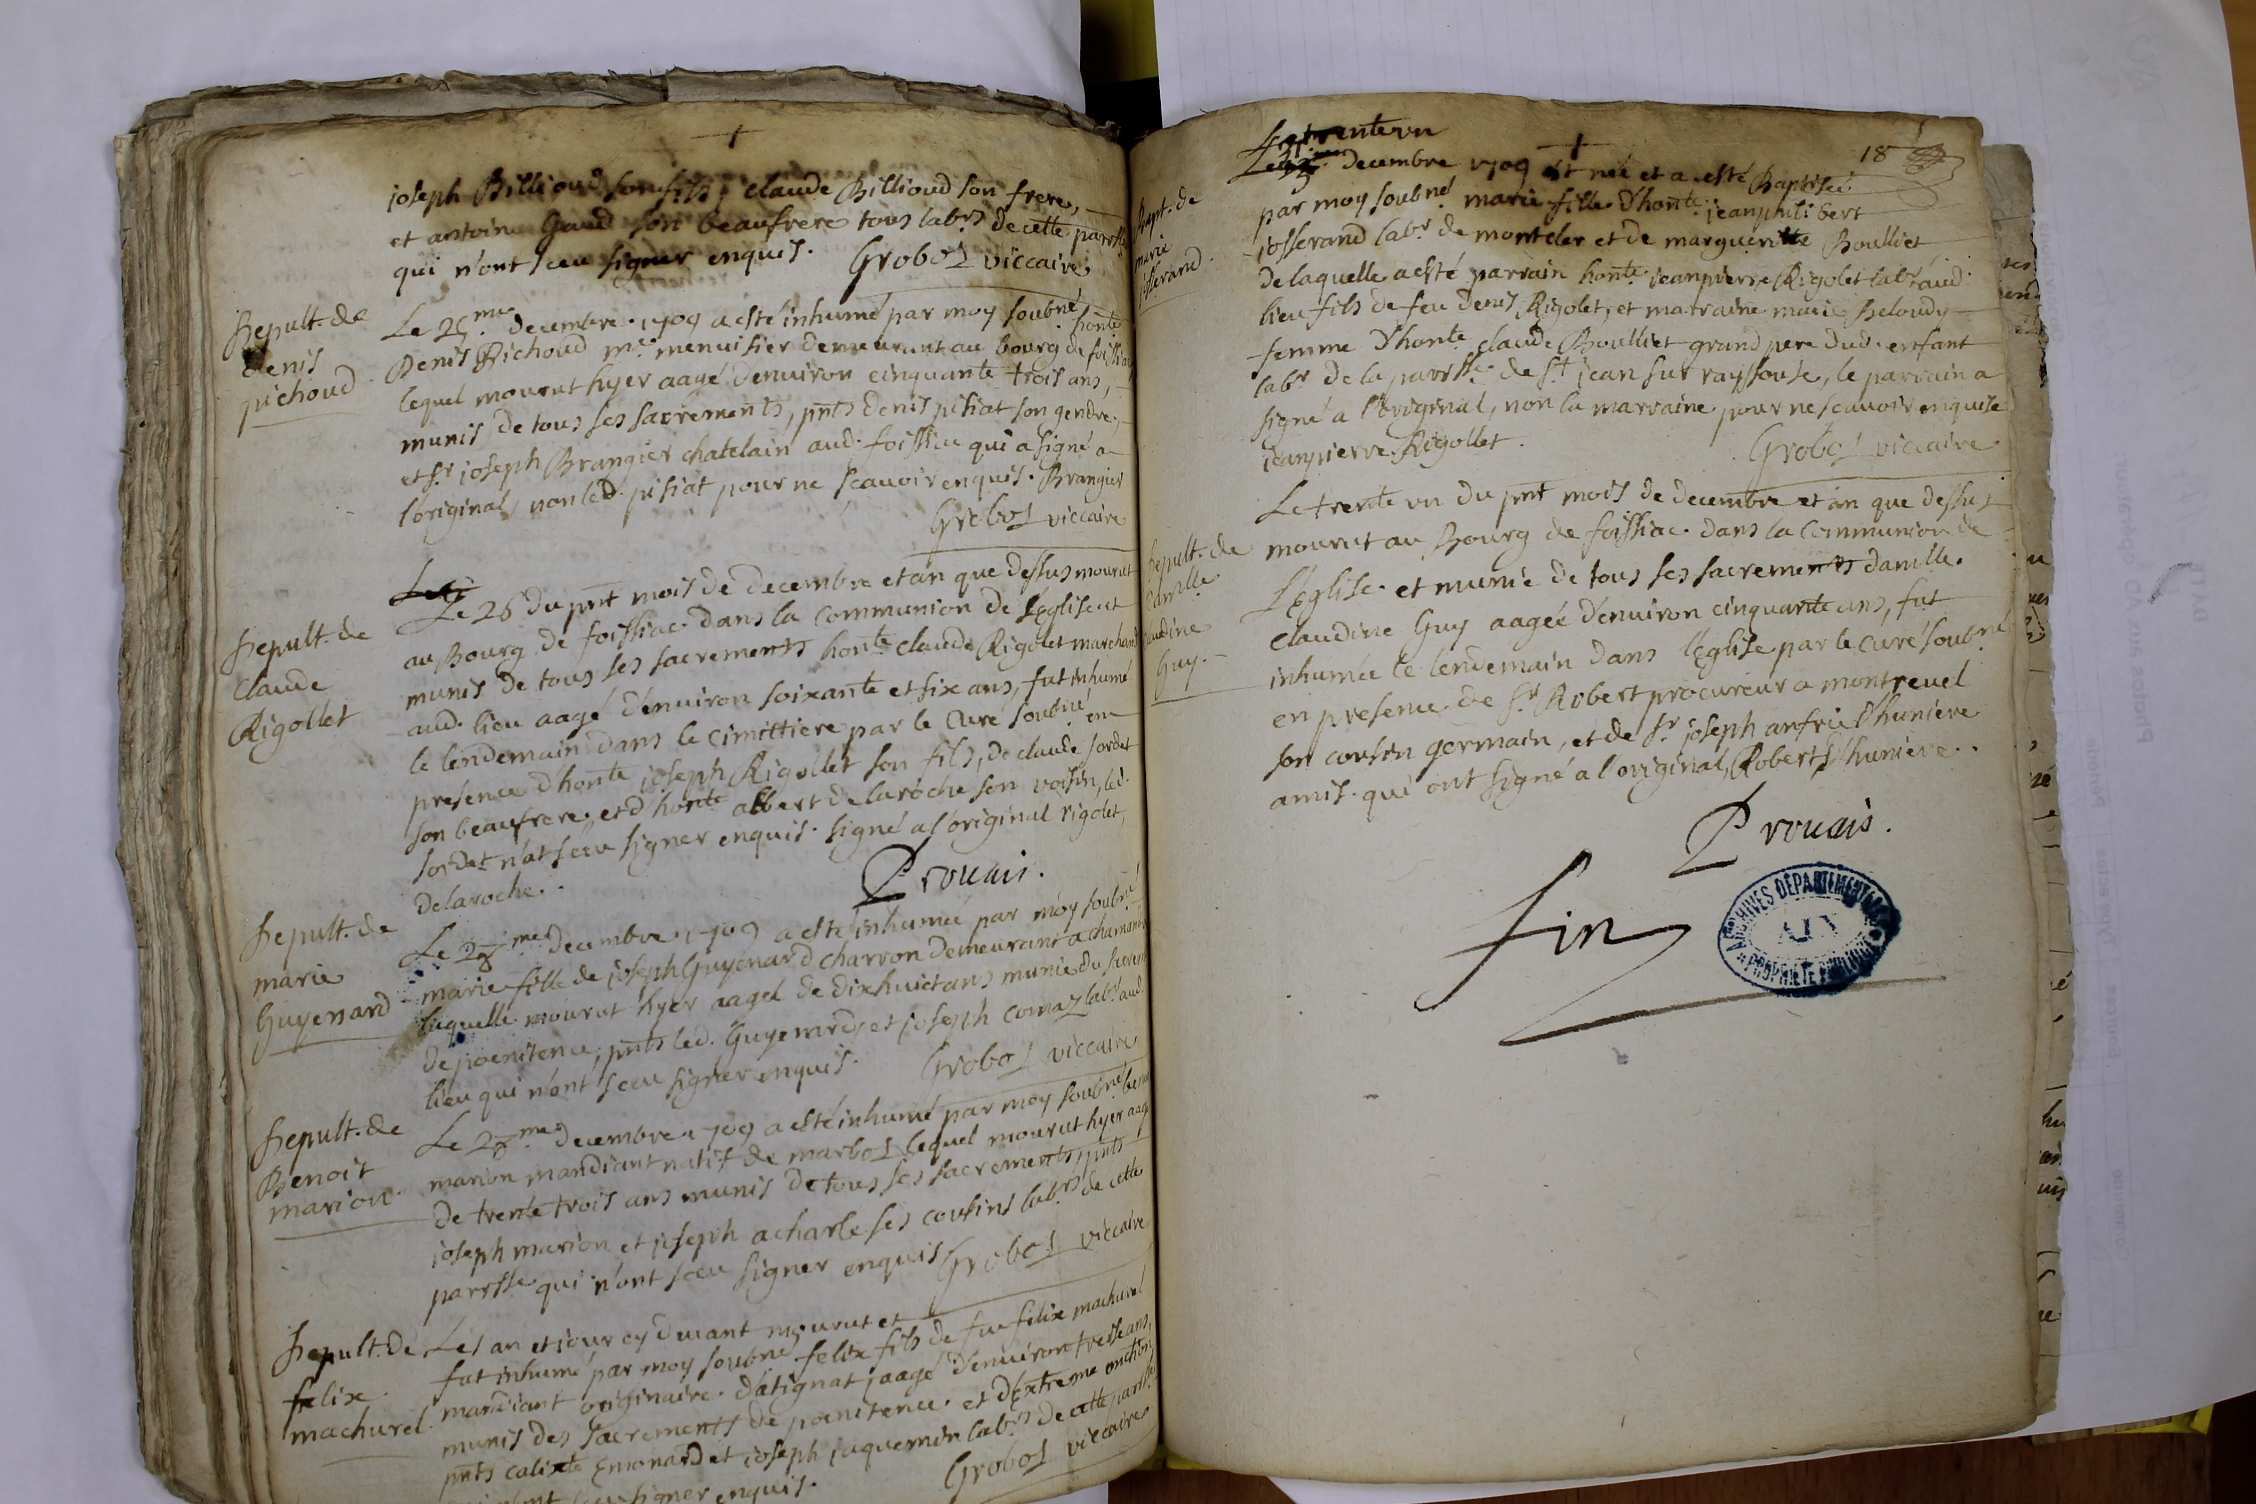 joseph Billioud son fils, claude Billioud son frere,
et antoine Gaud son beaufrere tous labrs de cette parrsse
qui n'ont sceu signer enquis. Grobos viccaire
Sepult. de
denis
pichoud
Le 25me decembre 1709 a esté inhumé par moy soubné honte
Denis Pichoud me menuisier demeurant au bourg de foissiac
lequel mourut hyer aagé d'environ cinquante trois ans,
munis de tous ses sacrements, pnts denis pisiat son gendre
et sr joseph Brangier chatelain aud. foissiac qui a signé a
l'original, non led. pisiat pour ne scavoir enquis. Brangier
Grobos viccaire
Sepult. de
Claude
Rigollet
Le 26 du pnt mois de decembre et an que dessus mourut
au Bourg de foissiac dans la Communion de L'eglise et
munis de tous ses sacrements honte claude Rigolet marchand
aud. lieu aagé d'environ soixante et six ans, fut inhumé
le lendemain dans le cimittiere par le Curé soubné en
presence d'honte joseph Rigollet son fils, de claude sordet
son beaufrere, et d'honte albert delaroche son voisin, led.
sordet n'at sceu signer enquis. signé a l'original rigolet,
delaroche.
Prouais.
Sepult. de
marie
Guyenard
Le 28me decembre 1709 a esté inhumée par moy soubné
marie fille de joseph Guyenard charron demeurant a
laquelle mourut hyer aagée de dixhuict ans munie du
de poenitence, pnts led. Guyenard, et joseph comaz labr aud.
lieu qui n'ont sceu signer enquis. Grobos viccaire
Sepult. de
Benoit
marion
Le 28me decembre 1709 a esté inhumé par moy soubné
marion mandiant natif de marbos lequel mourut hyer aagé
de trente trois ans munis de tous ses sacrements, pnts
joseph marion et joseph acharle ses cousins labrs de cette
parrsse qui n'ont sceu signer enquis Grobos viccaire
Sepult. de
felix
machurel
Les an et jour cy devant mourut et
fut inhumé par moy soubné felix fils de feu felix machurel
mandiant originaire d'atignat, aagé d'environ treise ans,
munis des sacrements de poenitence et d'extreme onction
pnts calixte Emonard et joseph jaquemin labrs de cette parrsse
sceu signer enquis. Grobos viccaire
18
Bapt. de
marie
josserand
trente un
decembre 1709 est née et a esté Baptisée
par moy soubné marie fille d'honte jeanphilibert
josserand labr de monteler et de margueritte Boulliet
de laquelle a esté parrain honte jeanpierre Rigolet labr aud.
lieu fils de feu denis Rigolet, et marraine marie Beloudy
femme d'honte claude Boulliet grand pere dud. enfant
labr de la parrsse de st jean sur rayssouse, le parrain a
signé a l'original, non la marraine pour ne scavoir enquise
jeanpierre Rigollet. Grobos viccaire
Sepult. de
damlle
claudine
Guy.
Le trente un du pnt mois de decembre et an que dessus
mourut au Bourg de foissiac dans la Communion de
L'eglise et munie de tous ses sacrements damlle
Claudine Guy aagée d'environ cinquante ans, fut
inhumée le lendemain dans l'Eglise par le curé soubné
en presence de sr Robert procureur a montrevel
son cousin germain, et de sr joseph anfrie d'huniere
amis. qui ont signé a l'original, Robert, d'huniere.
Prouais.
fin
ARCHIVES DEPARTEMENTALES
AIN
PROPRIETE PUBLIQUE